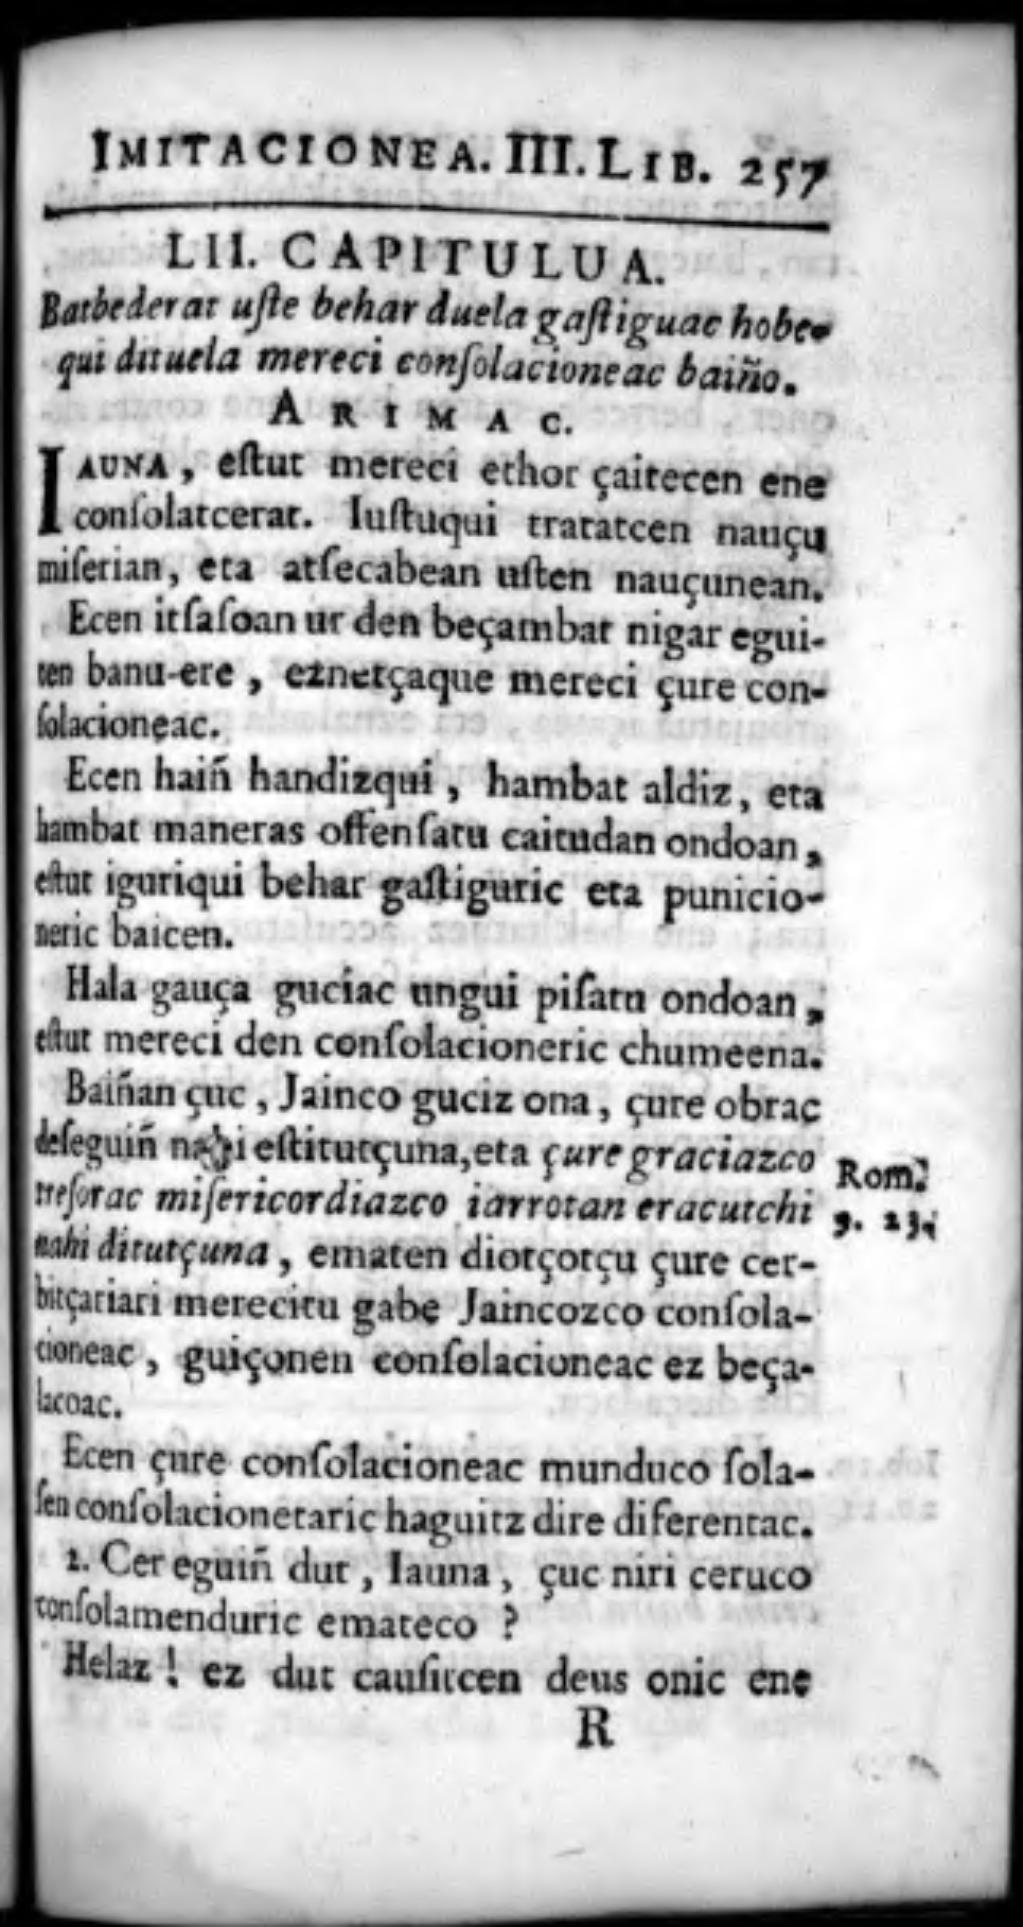 IMITACIONEA. III. LIB. 257
LII. CAPITULUA.
Batbederat uſte behar duela gaſtiguac hobe-
qui dituela mereci conſolacioneac baiño.
ARIMAC.
IAUNA, eſtut mereci ethor çaitecen ene
conſolatcerat. Iuſtuqui tratatcen nauçu
miſerian, eta atſecabean uſten nauçunean.
Ecen itſaſoan ur den beçambat nigar egui-
ten banu-ere, eznetçaque mereci çure con-
ſolacioneac.
Ecen haiñ handizqui, hambat aldiz, eta
hambat maneras offenſatu caitudan ondoan,
eſtut iguriqui behar gaſtiguric eta punicio-
neric baicen.
Hala gauça guciac ungui piſatu ondoan,
eſtut mereci den conſolacioneric chumeena.
Baiñan çuc, Jainco guciz ona, çure obrac
deſeguiñ nahi eſtitutçuna, eta çure graciazco
treſorac miſericordiazco iarrotan eracutchi
nahi ditutçuna, ematen diotçotçu çure cer-
bitçariari merecitu gabe Jaincozco conſola-
cioneac, guiçonen conſolacioneac ez beça-
lacoac.
Rom.
9. 23.
Ecen çure conſolacioneac munduco ſola-
ſen conſolacionetaric haguitz dire diferentac.
2. Cer eguiñ dut, Iauna, çuc niri ceruco
conſolamenduric emateco ?
Helaz ! ez dut cauſitcen deus onic ene
R